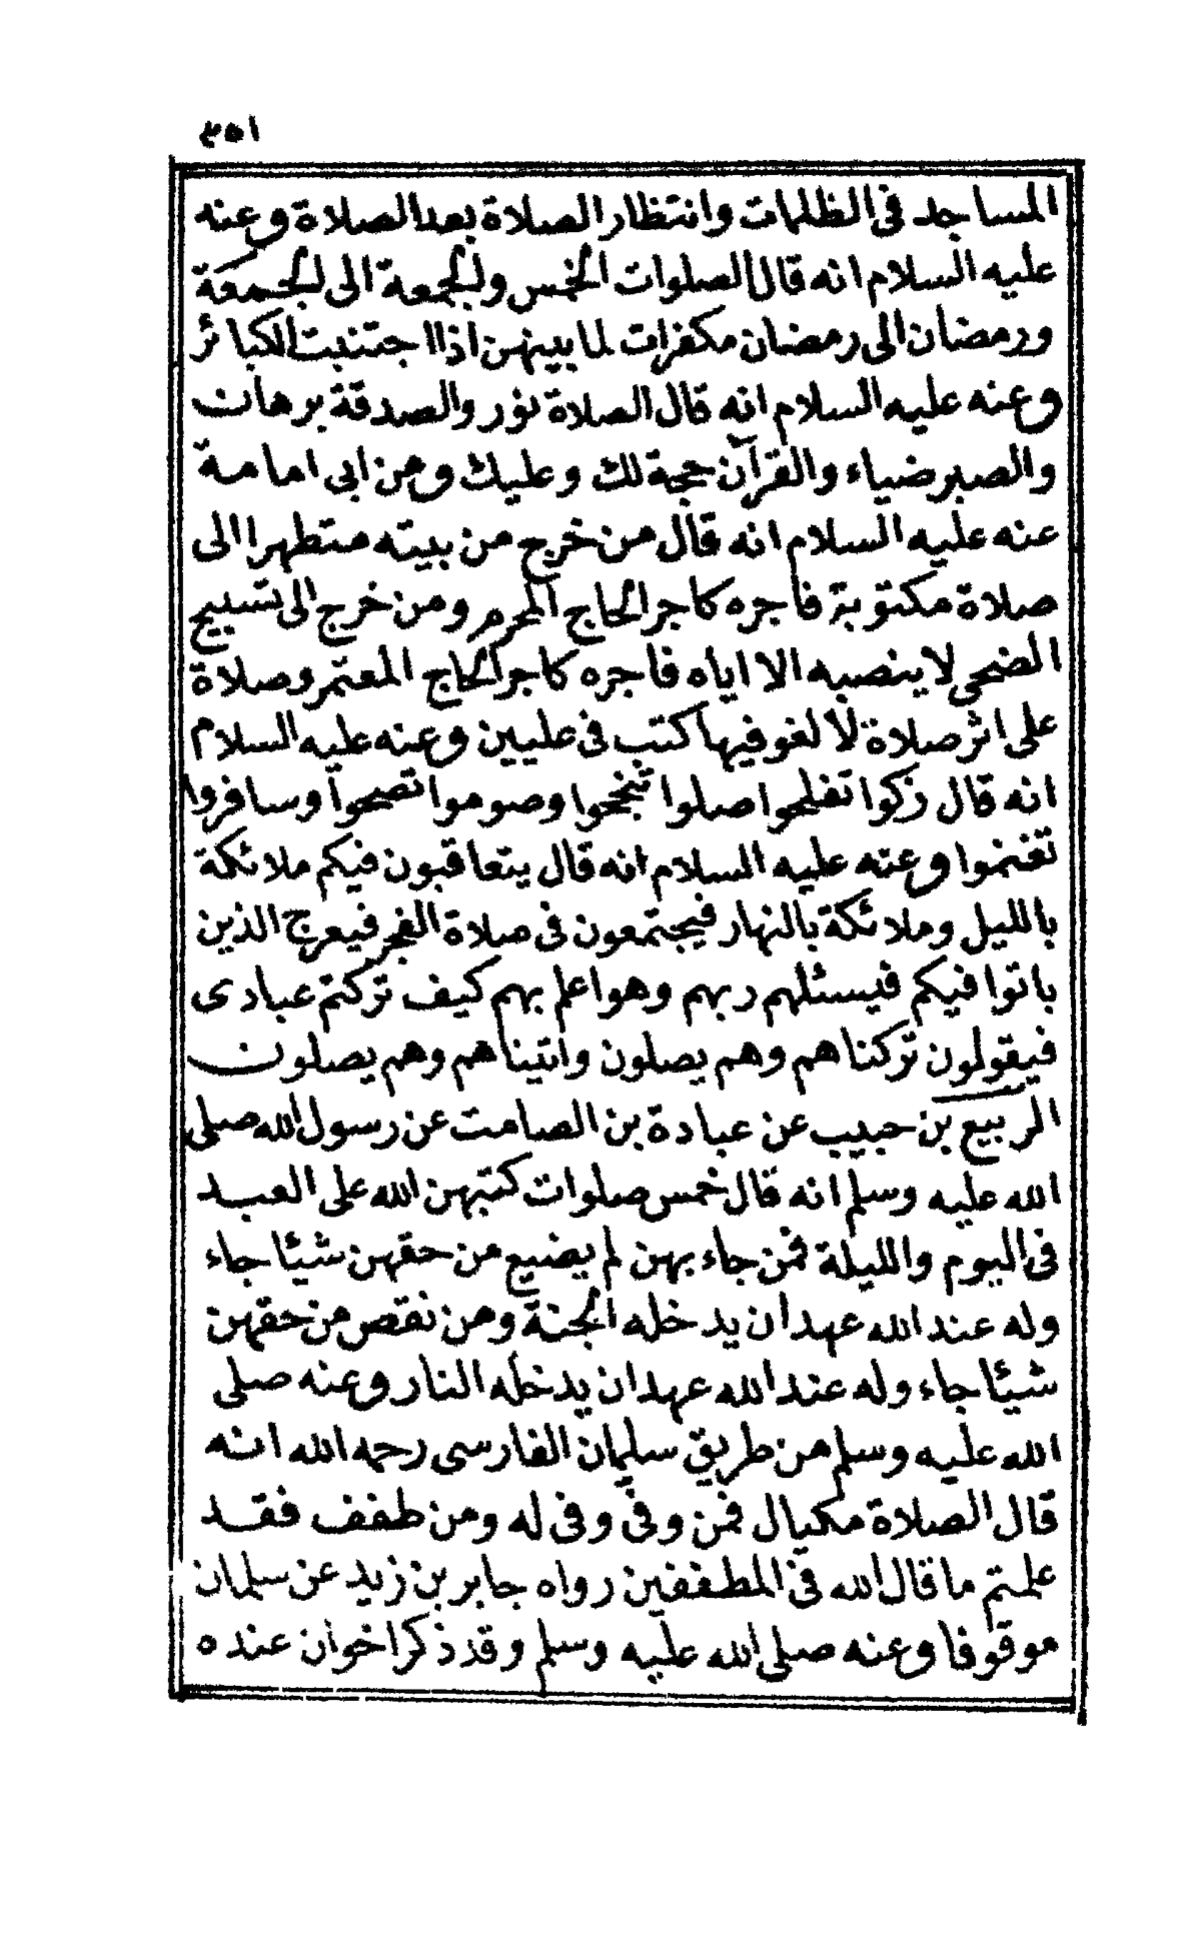 ٣٥١
المساجد فى الظلمات وانتظار الصلاة بعد الصلاة وعنه
عليه السلام انه قال الصلوات الخمس والجمعة الى الجمعة
ورمضان الى رمضان مكفرات لما بينهن اذا اجتنبت الكبائر
وعنه عليه السلام انه قال الصلاة نور والصدقة برهان
والصبر ضياء والقرآن حجة لك وعليك ومن ابى امامة
عنه عليه السلام انه قال من خرج من بيته متطهرا الى
صلاة مكتوبة فاجره كاجر الحاج المحرم ومن خرج الى تسبيح
الضحى لا ينصبه الا اياه فاجره كاجر الحاج المعتمر وصلاة
على اثر صلاة لا لغو فيها كتب فى عليين وعنه عليه السلام
انه قال زكوا تفلحوا صلوا تنجحوا وصوموا تصحوا وسافروا
تغنموا وعنه عليه السلام انه قال يتعاقبون فيكم ملائكة
بالليل وملائكة بالنهار فيجتمعون فى صلاة الفجر فيعرج الذين
باتوا فيكم فيسئلهم ربهم وهو اعلم بهم كيف تركتم عبادى
فيقولون تركناهم وهم يصلون واتيناهم وهم يصلون
الربيع بن حبيب عن عبادة بن الصامت عن رسول الله صلى
الله عليه وسلم انه قال خمس صلوات كتبهن الله على العبد
فى اليوم والليلة فمن جاء بهن لم يضيع من حقهن شيئا جاء
وله عند الله عهد ان يدخله الجنة ومن نقص من حقهن
شيئا جاء وله عند الله عهد ان يدخله النار وعنه صلى
الله عليه وسلم من طريق سليمان الفارسى رحمه الله انه
قال الصلاة مكيال فمن وفى وفى له ومن طفف فقد
علمتم ما قال الله فى المطففين رواه جابر بن زيد عن سلمان
موقوفا وعنه صلى الله عليه وسلم وقد ذكر اخوان عنده